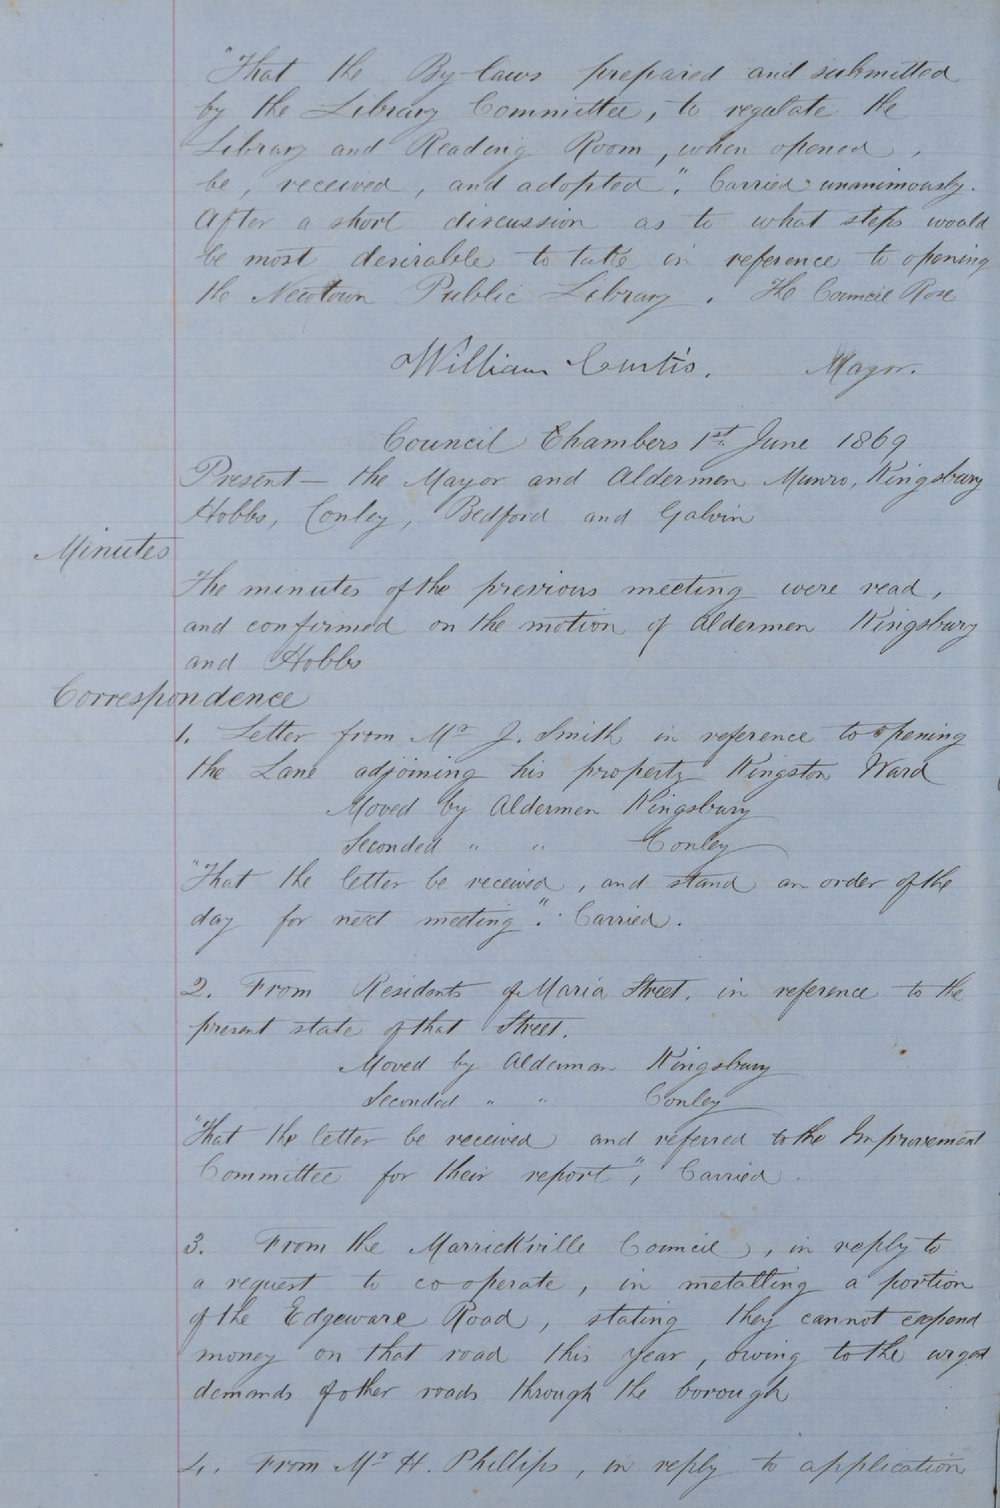 "That the By-laws prepared and submitted
by the Library Committee, to regulate the
Library and Reading Room, when opened,
be, received, and adopted". Carried unanimously.
After a short discussion as to what steps would
be most desirable to take in reference to opening
the Newtown Public Library. The Council Rose
William Curtis. Mayor.
Council Chambers 1st June 1869
Present - the Mayor and Aldermen Munro, Kingsbury
Hobbs, Conley, Bedford and Galvin
Minutes
The minutes of the previous meeting were read,
and confirmed on the motion of Aldermen Kingsbury
and Hobbs
Correspondence
1. Letter from Mr J. Smith in reference to opening
the Lane adjoining his property Kingston Ward
Moved by Aldermen Kingsbury
Seconded " " Conley
"That the letter be received, and stand an order of the
day for next meeting". Carried.
2. From Residents of Maria Street, in reference to the
present state of that Street.
Moved by Alderman Kingsbury
Seconded " " Conley
"That the letter be received and referred to the Improvement
Committee for their report", Carried.
3. From the Marrickville Council, in reply to
a request to co-operate, in metalling a portion
of the Edgeware Road, stating they cannot expend
money on that road this year, owing to the urgent
demands of other roads through the borough
4. From Mr H. Phillips, in reply to application